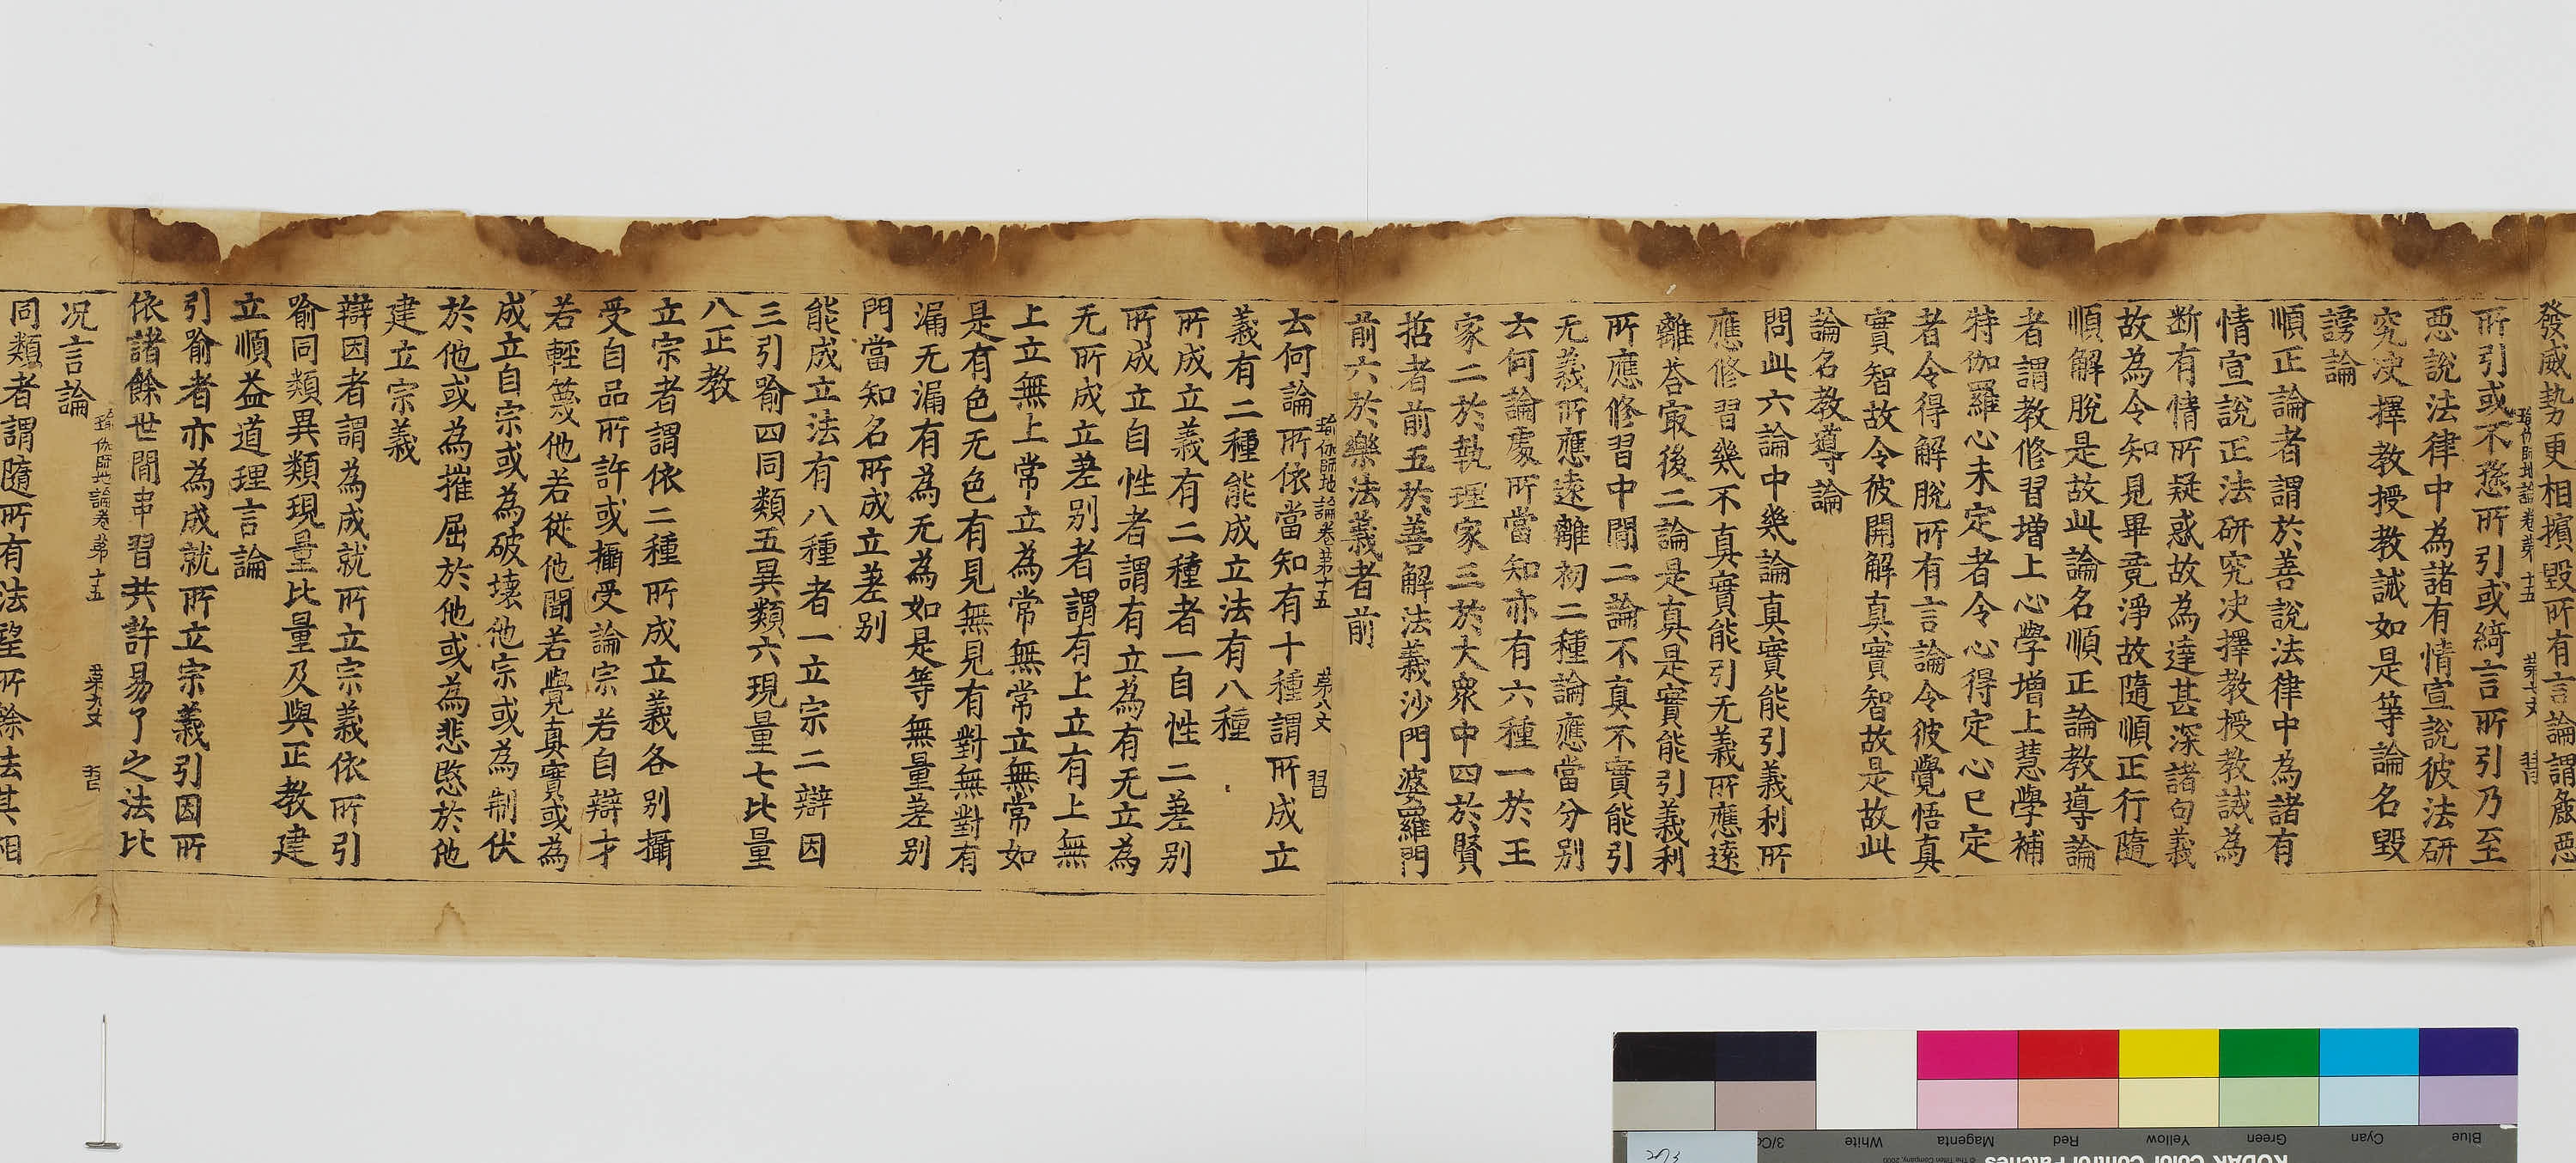 發威勢更相擯毀所有言論謂麁惡
瑜伽師地論卷第十五 第七丈 習
所引或不遜所引或綺言所引乃至
惡說法律中為諸有情宣說彼法研
究決擇教授教誡如是等論名毀
謗論
順正論者謂於善說法律中為諸有
情宣說正法研究決擇教授教誡為
断有情所疑惑故為達甚深諸句義
故為令知見畢竟淨故隨順正行隨
順解脫是故此論名順正論教導論
者謂教修習增上心學增上慧學補
特伽羅心未定者令心得定心已定
者令得解脫所有言論令彼覺悟真
實智故令彼開解真實智故是故此
論名教導論
問此六論中幾論真實能引義利所
應修習幾不真實能引无義所應遠
離荅寂後二論是真是實能引義利
所應修習中間二論不真不實能引
无義所應遠離初二種論應當分別
云何論處所當知亦有六種一於王
家二於執理家三於大衆中四於賢
哲者前五於善解法義沙門婆羅門
前六於樂法義者前
瑜伽師地論卷第十五 第八丈 習
云何論所依當知有十種謂所成立
義有二種能成立法有八種
所成立義有二種者一自性二差别
所成立自性者謂有立為有无立為
无所成立差别者謂有上立有上無
上立無上常立為常無常立無常如
是有色无色有見無見有對無對有
漏无漏有為无為如是等無量差别
門當知名所成立差别
能成立法有八種者一立宗二辯因
三引喻四同類五異類六現量七比量
八正教
立宗者謂依二種所成立義各别攝
受自品所許或攝受論宗若自辯才
若輕蔑他若從他聞若覺真實或為
成立自宗或為破壞他宗或為制伏
於他或為摧屈於他或為悲愍於他
建立宗義
辯因者謂為成就所立宗義依所引
喻同類異類現量比量及與正教建
立順益道理言論
引喻者亦為成就所立宗義引因所
依諸餘世間串習共許易了之法比
瑜伽師地論卷第十五 第九丈 習
况言論
同類者謂隨所有法望所餘法其相
Blue
Cyan
Green
Yellow
Red
Magenta
White
3/Co
KODAK Color Control Patches
© The Tiffen Company, 2000